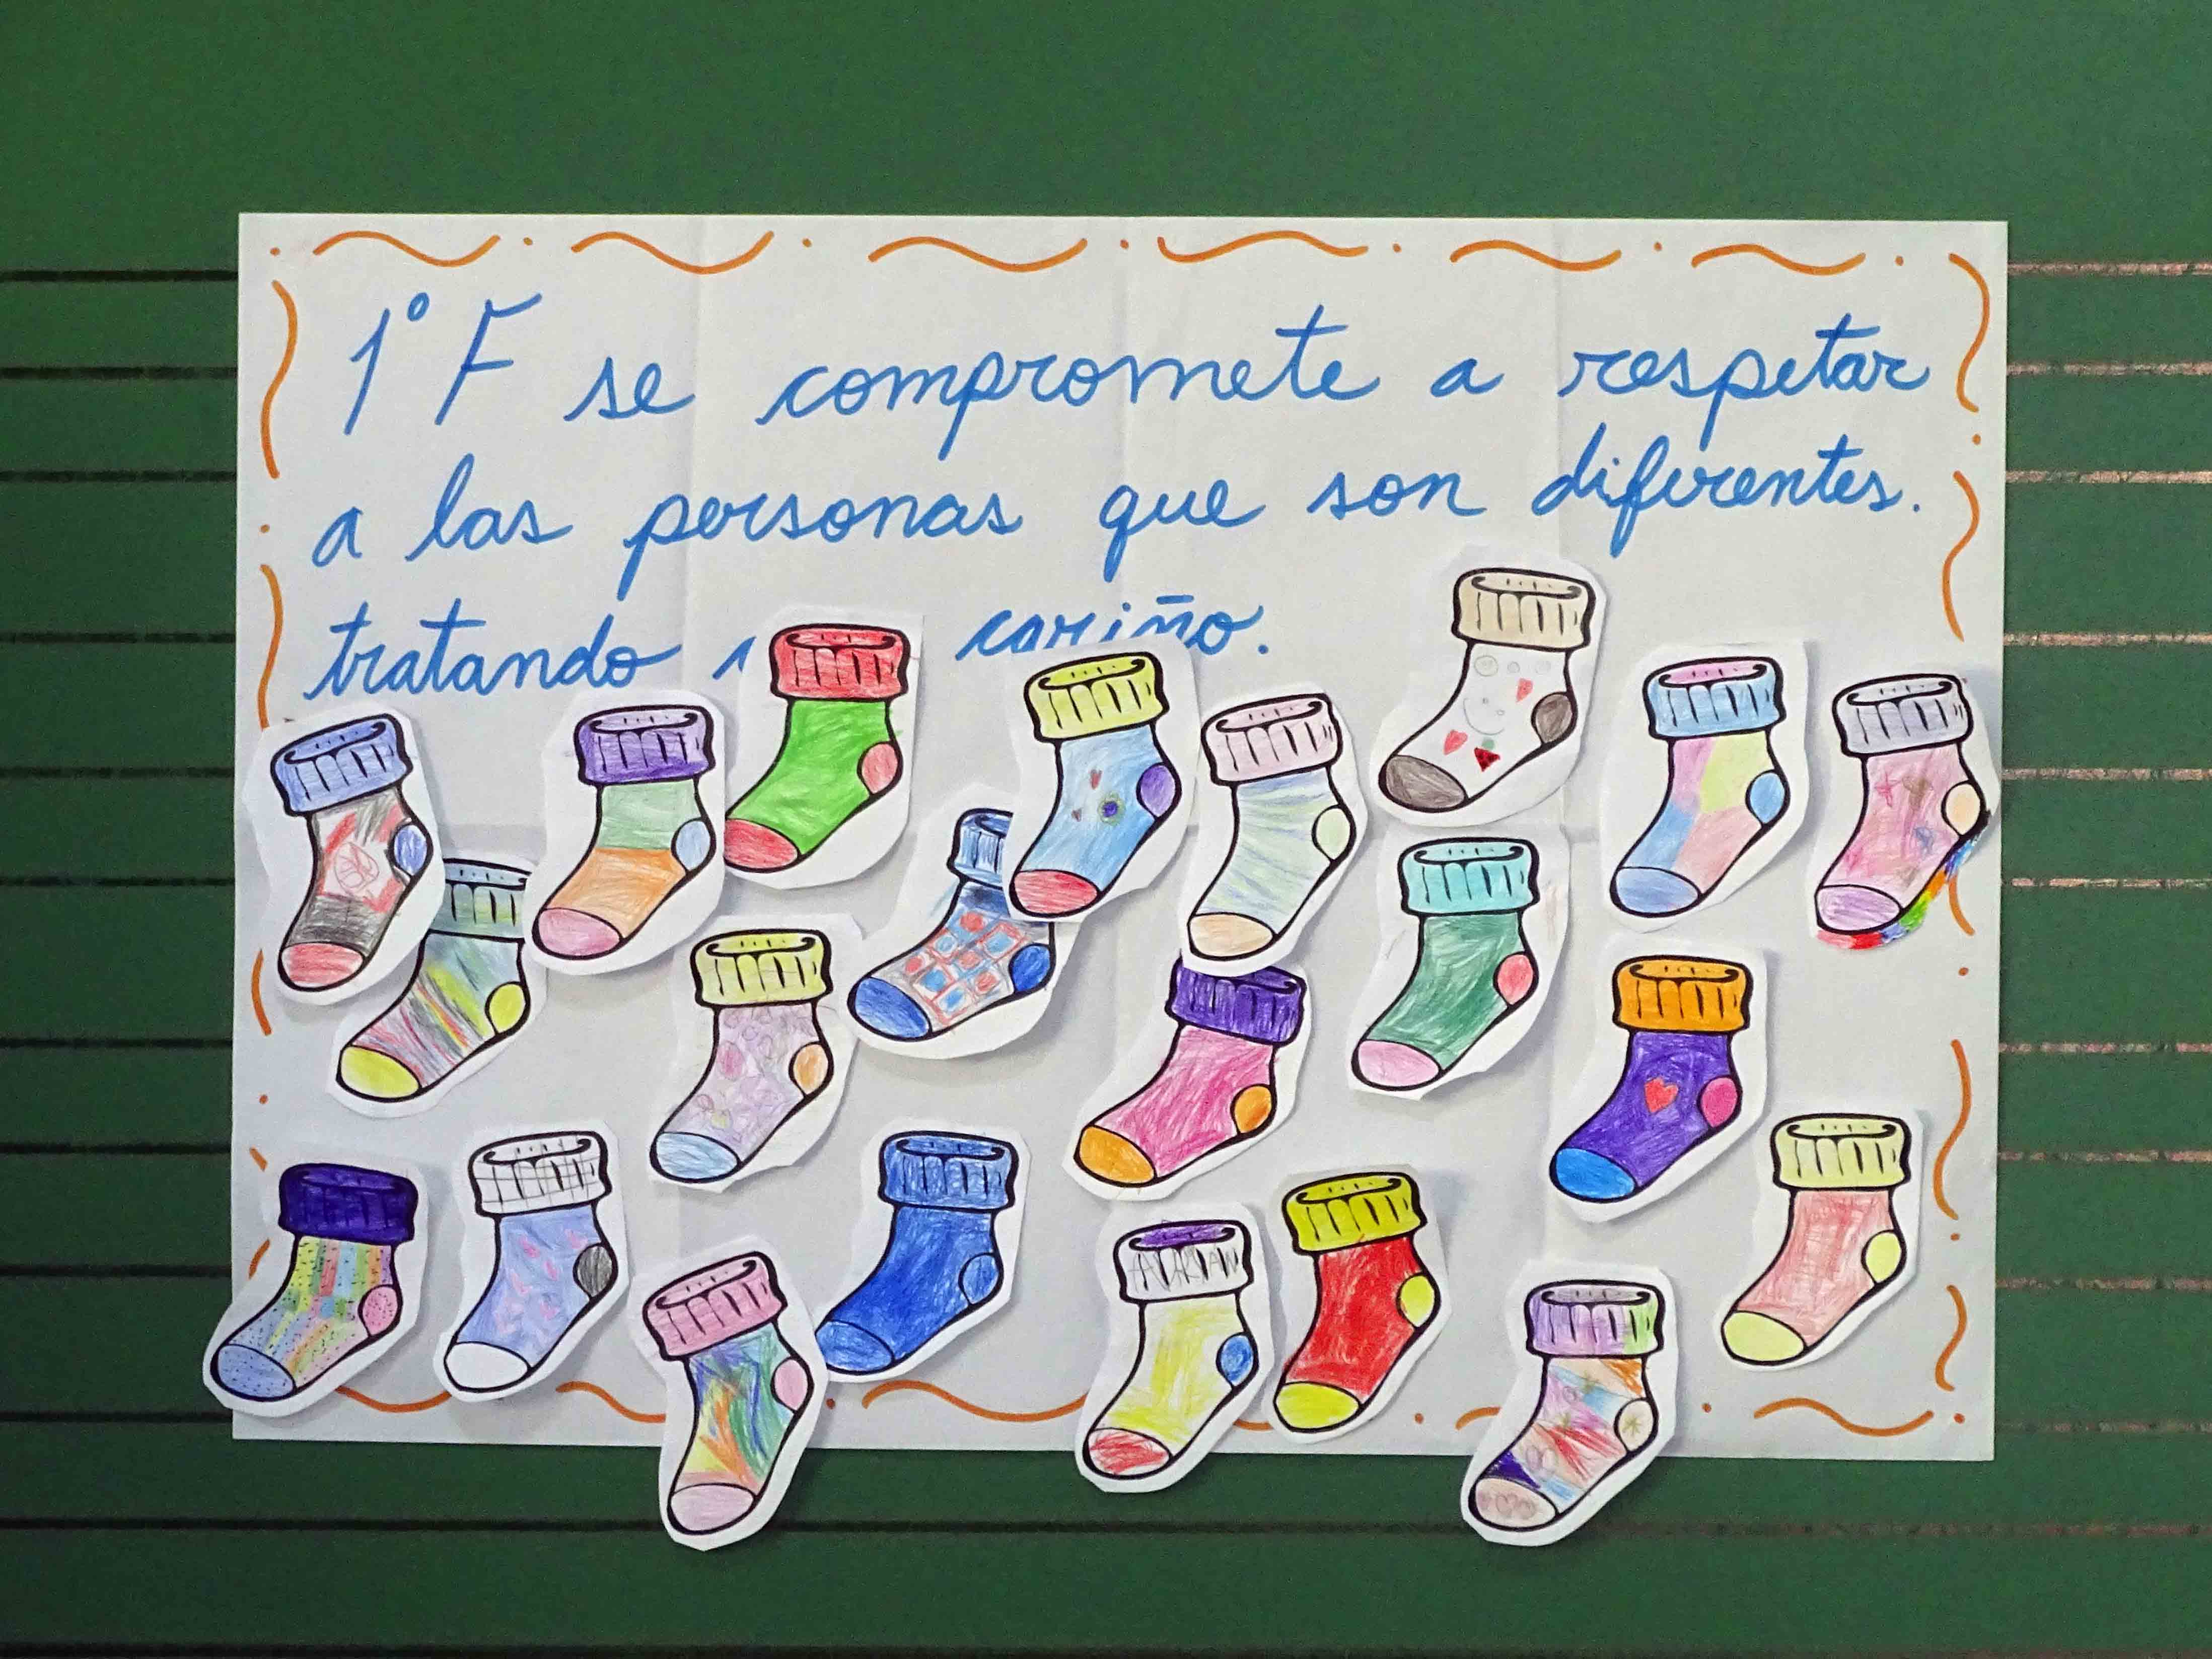 1º F se compromete a respetar
a las personas que son diferentes.
tratando cariño.
ADRIAN